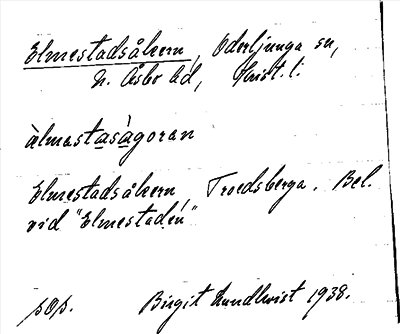 Elmestadsåkern, Oderljunga sn,
N. Åsbo hd, Krist. l.
àlmastasàgoran
Elmestadsåkern, Troedsberga. Bel.
vid "Elmestaden"
sos. Birgit Lundkvist 1938.